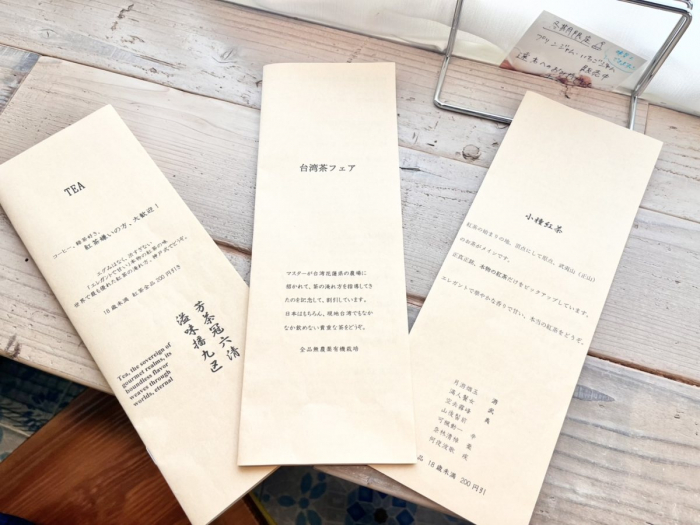 TEA
コーヒー、緑茶好き、
紅茶嫌いの方、大歓迎!
エグみはなく、渋すぎない
(エレガントで甘い)本物の紅茶の味、
世界で最も優れた紅茶の淹れ方、神戸式でどうぞ。
18歳未満 紅茶全品200円引き
芳茶冠六清
溢味播九区
Tea, the sovereign of
gourmet realms, its
boundless flavor
weaves through
worlds, eternal
台湾茶フェア
マスターが台湾花蓮県の農場に
招かれて、茶の淹れ方を指導してき
たのを記念して、割引しています。
日本はもちろん、現地台湾でもなか
なか飲めない貴重な茶をどうぞ。
全品無農薬有機栽培
小種紅茶
紅茶の始まりの地、
のお茶がメインです。
正真正銘、本物の紅茶だけをピックアップしています。
エレガントで艶やかな香りで甘い、本当の紅茶をどうぞ。
品 18歳未満 200円引